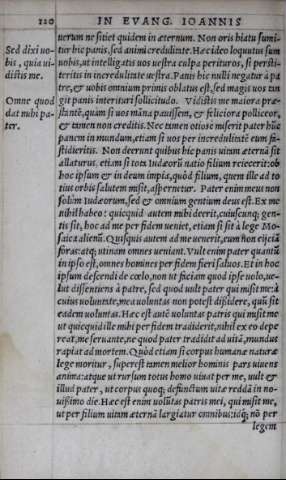 120 IN EVANG. IOANNIS
uerum ne sitiet quidem in æternum. Non oris hiatu sumi-
Sed dixi uo- tur hic panis, sed animi credulitate. Hæc ideo loquutus sum
bis, quia ui- uobis, ut intelligatis uos uestra culpa perituros, si persti-
distis me. teritis in incredulitate uestra. Panis hic nulli negatur à pa
tre, & uobis omnium primis oblatus est, sed magis uos tan
Omne quod git panis interituri sollicitudo. Vidistis me maiora præ-
dat mihi pa- stantē, quàm si uos māna pauissem, & feliciora polliceor,
ter. & tamen non creditis. Nec tamen otiose miserit pater hūc
panem in mundum, etiam si uos per incredulitatē eum fa-
stidieritis. Non deerunt quibus hic panis uitam æternā sit
allaturus. etiam si tota Iudæorū natio filium reiecerit: ob
hoc ipsum & in deum impia, quòd filium, quem ille ad to
tius orbis salutem misit, aspernetur. Pater enim meus non
solùm Iudæorum, sed & omnium gentium deus est. Ex me
nihil habeo: quicquid autem mihi decrit, cuiuscunq; gen-
tis sit, hoc ad me per fidem ueniet, etiam si sit à lege Mo-
saica alienū. Quisquis autem ad me uenerit, eum non eijciā
foras: atq; utinam omnes ueniant. Vult enim pater quantū
in ipso est, omnes homines per fidem fieri saluos. Et in hoc
ipsum descendi de cœlo, non ut faciam quod ipse uolo, ue-
lut dissentiens à patre, sed quod uult pater qui misit me: à
cuius uoluntate, mea uoluntas non potest dißidere, quū sit
eadem uoluntas. Hæc est autē uoluntas patris qui misit me
ut quicquid ille mihi per fidem tradiderit, nihil ex eo depe
reat, me seruante, ne quod pater tradidit ad uitā, mundus
rapiat ad mortem. Quòd etiam si corpus humanæ naturæ
lege moritur, superest tamen melior hominis pars uiuens
anima: atque ut rursum totus homo uiuat per me, uult &
illud pater, ut corpus quoq; defunctum uitæ reddā in no-
uißimo die. Hæc est enim uolūtas patris mei, qui misit me,
ut per filium uitam æternā largiatur omnibus: idq; nō per
legem